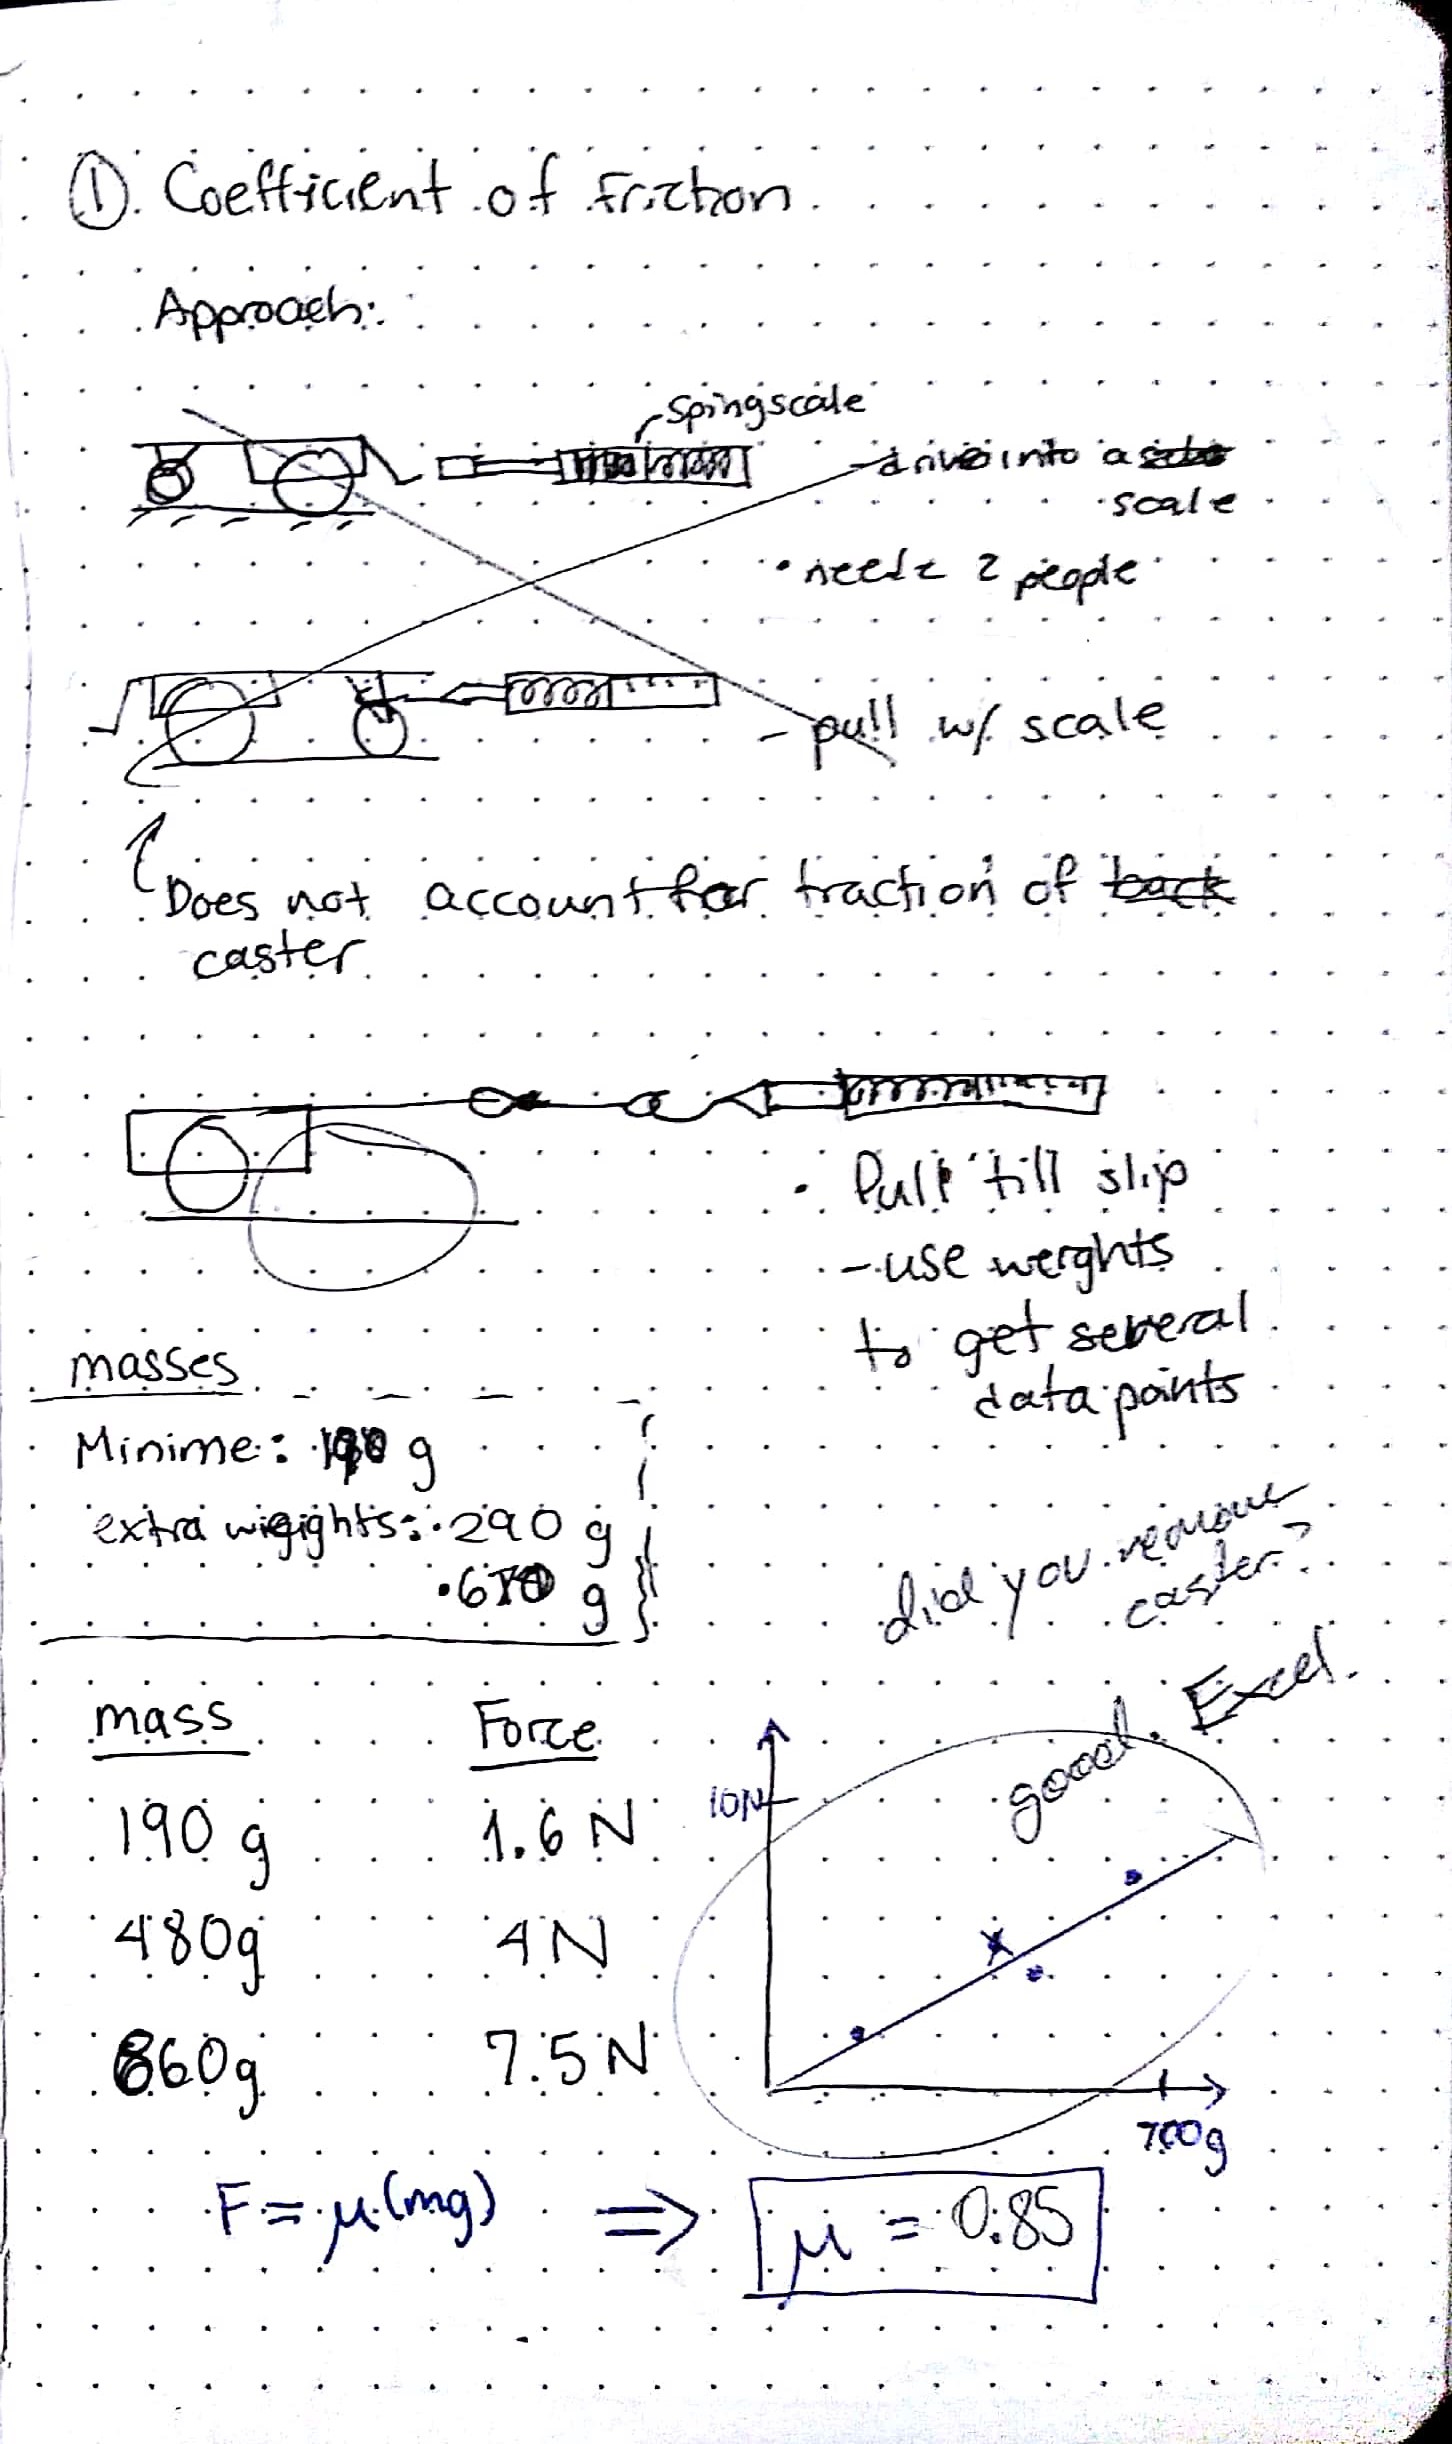 ① Coefficient of friction
Approach:
Spingscale
- drive into a
scale
• needz 2 people
- pull w/ scale
Does not account for traction of back
caster
• Pull 'till slip
- use weights
to get several
data points
masses
Minime: 190 g
extra wigights: • 290 g
• 670 g
did you remove
caster?
mass Force
190 g 1.6 N
480g 4N
860g 7.5N
good. Excel.
10N
700g
F = μ(mg) ⇒ μ = 0.85